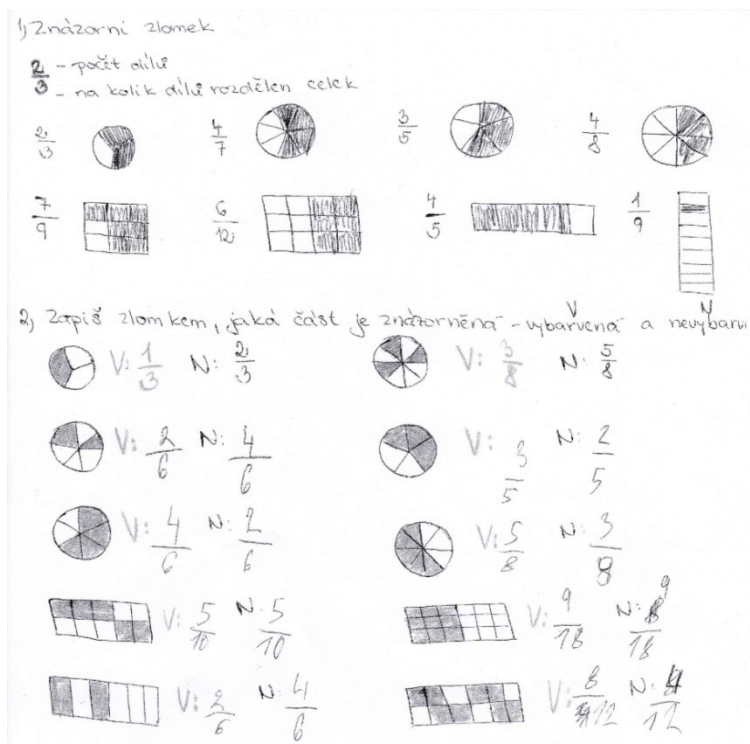 1) Znázorni zlomek
2/3 - počet dílů
- na kolik dílů rozdělen celek
2/3 4/7 3/5 4/8
7/9 6/12 4/5 1/9
2) Zapiš zlomkem, jaká část je znázorněná - vybarvená a nevybarvi
V N
V: 1/3 N: 2/3 V: 3/8 N: 5/8
V: 2/6 N: 4/6 V: 3/5 N: 2/5
V: 4/6 N: 2/6 V: 5/8 N: 3/8
V: 5/10 N: 5/10 V: 9/18 N: 9/18
V: 2/6 N: 4/6 V: 8/12 N: 4/12